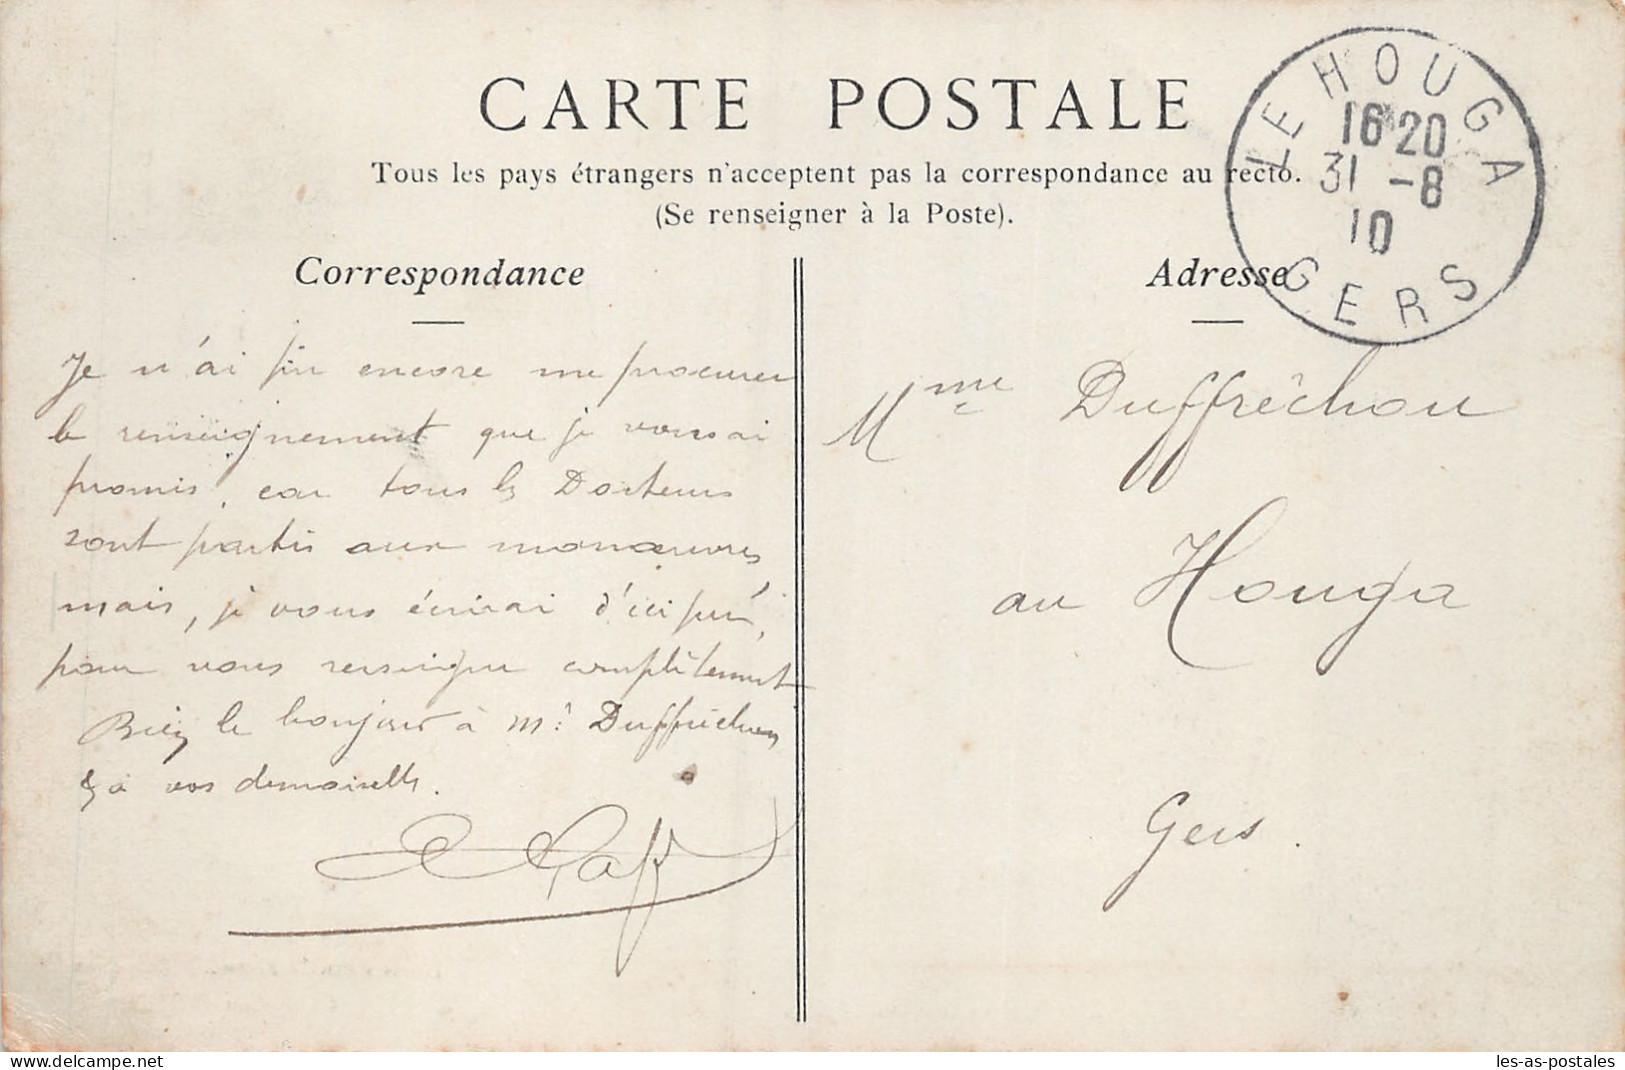 CARTE POSTALE
Tous les pays étrangers n'acceptent pas la correspondance au recto.
(Se renseigner à la Poste).
LE HOUGA
16 20
31 -8
10
GERS
Correspondance
Je n'ai pu encore me procurer
le renseignement que je vous ai
promis, car tous les Docteurs
sont partis aux manœuvres
mais, je vous écrirai d'ici peu,
pour vous renseigner complètement
Bien le bonjour à Mr Duffréchou
& à vos demoiselles.
Adresse
Mme Duffréchou
au Houga
Gers.
delcampe.net
les-as-postales